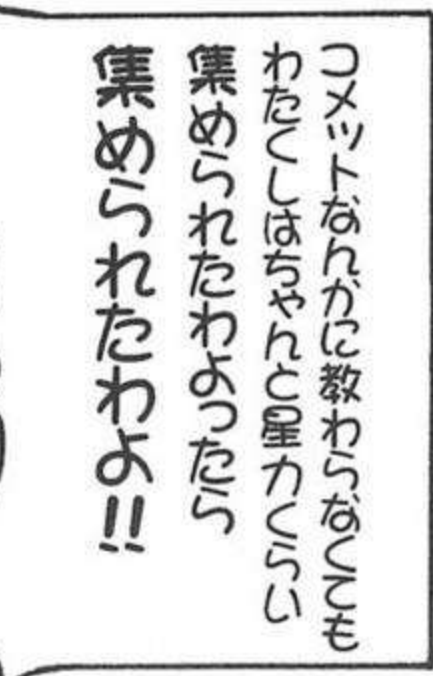 コメットなんかに教わらなくても
わたくしはちゃんと星力くらい
集められたわよったら
集められたわよ!!